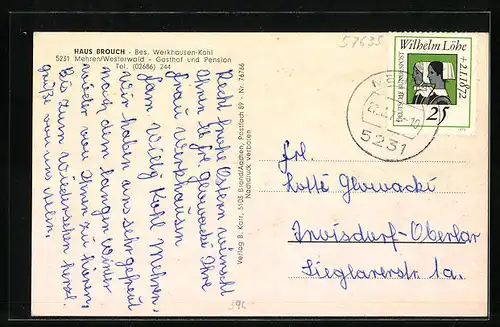 57635
HAUS BROUCH - Bes. Werkhausen-Kohl
5231 Mehren/Westerwald - Gasthof und Pension
Tel. (02686) 244
Recht frohe Ostern wünscht
Ihnen lb. Frl. Glowacki Ihre
Frau Werkhausen
Fam. Willy Kohl Mehren.
Wir haben uns sehr gefreut
nach dem langen Winter
wieder von Ihnen zu hören.
Bis zum Wiedersehen herzl.
Grüße von uns allen.
Verlag B. Korr, 5105 Brand/Aachen, Postfach 89 - Nr. 76766
Nachdruck verboten
Wilhelm Löhe
+2.1.1872
DEUTSCHE BUNDESPOST
25
5231
Frl.
Lotte Glowacki
Troisdorf-Oberlar
Sieglarerstr 1a.